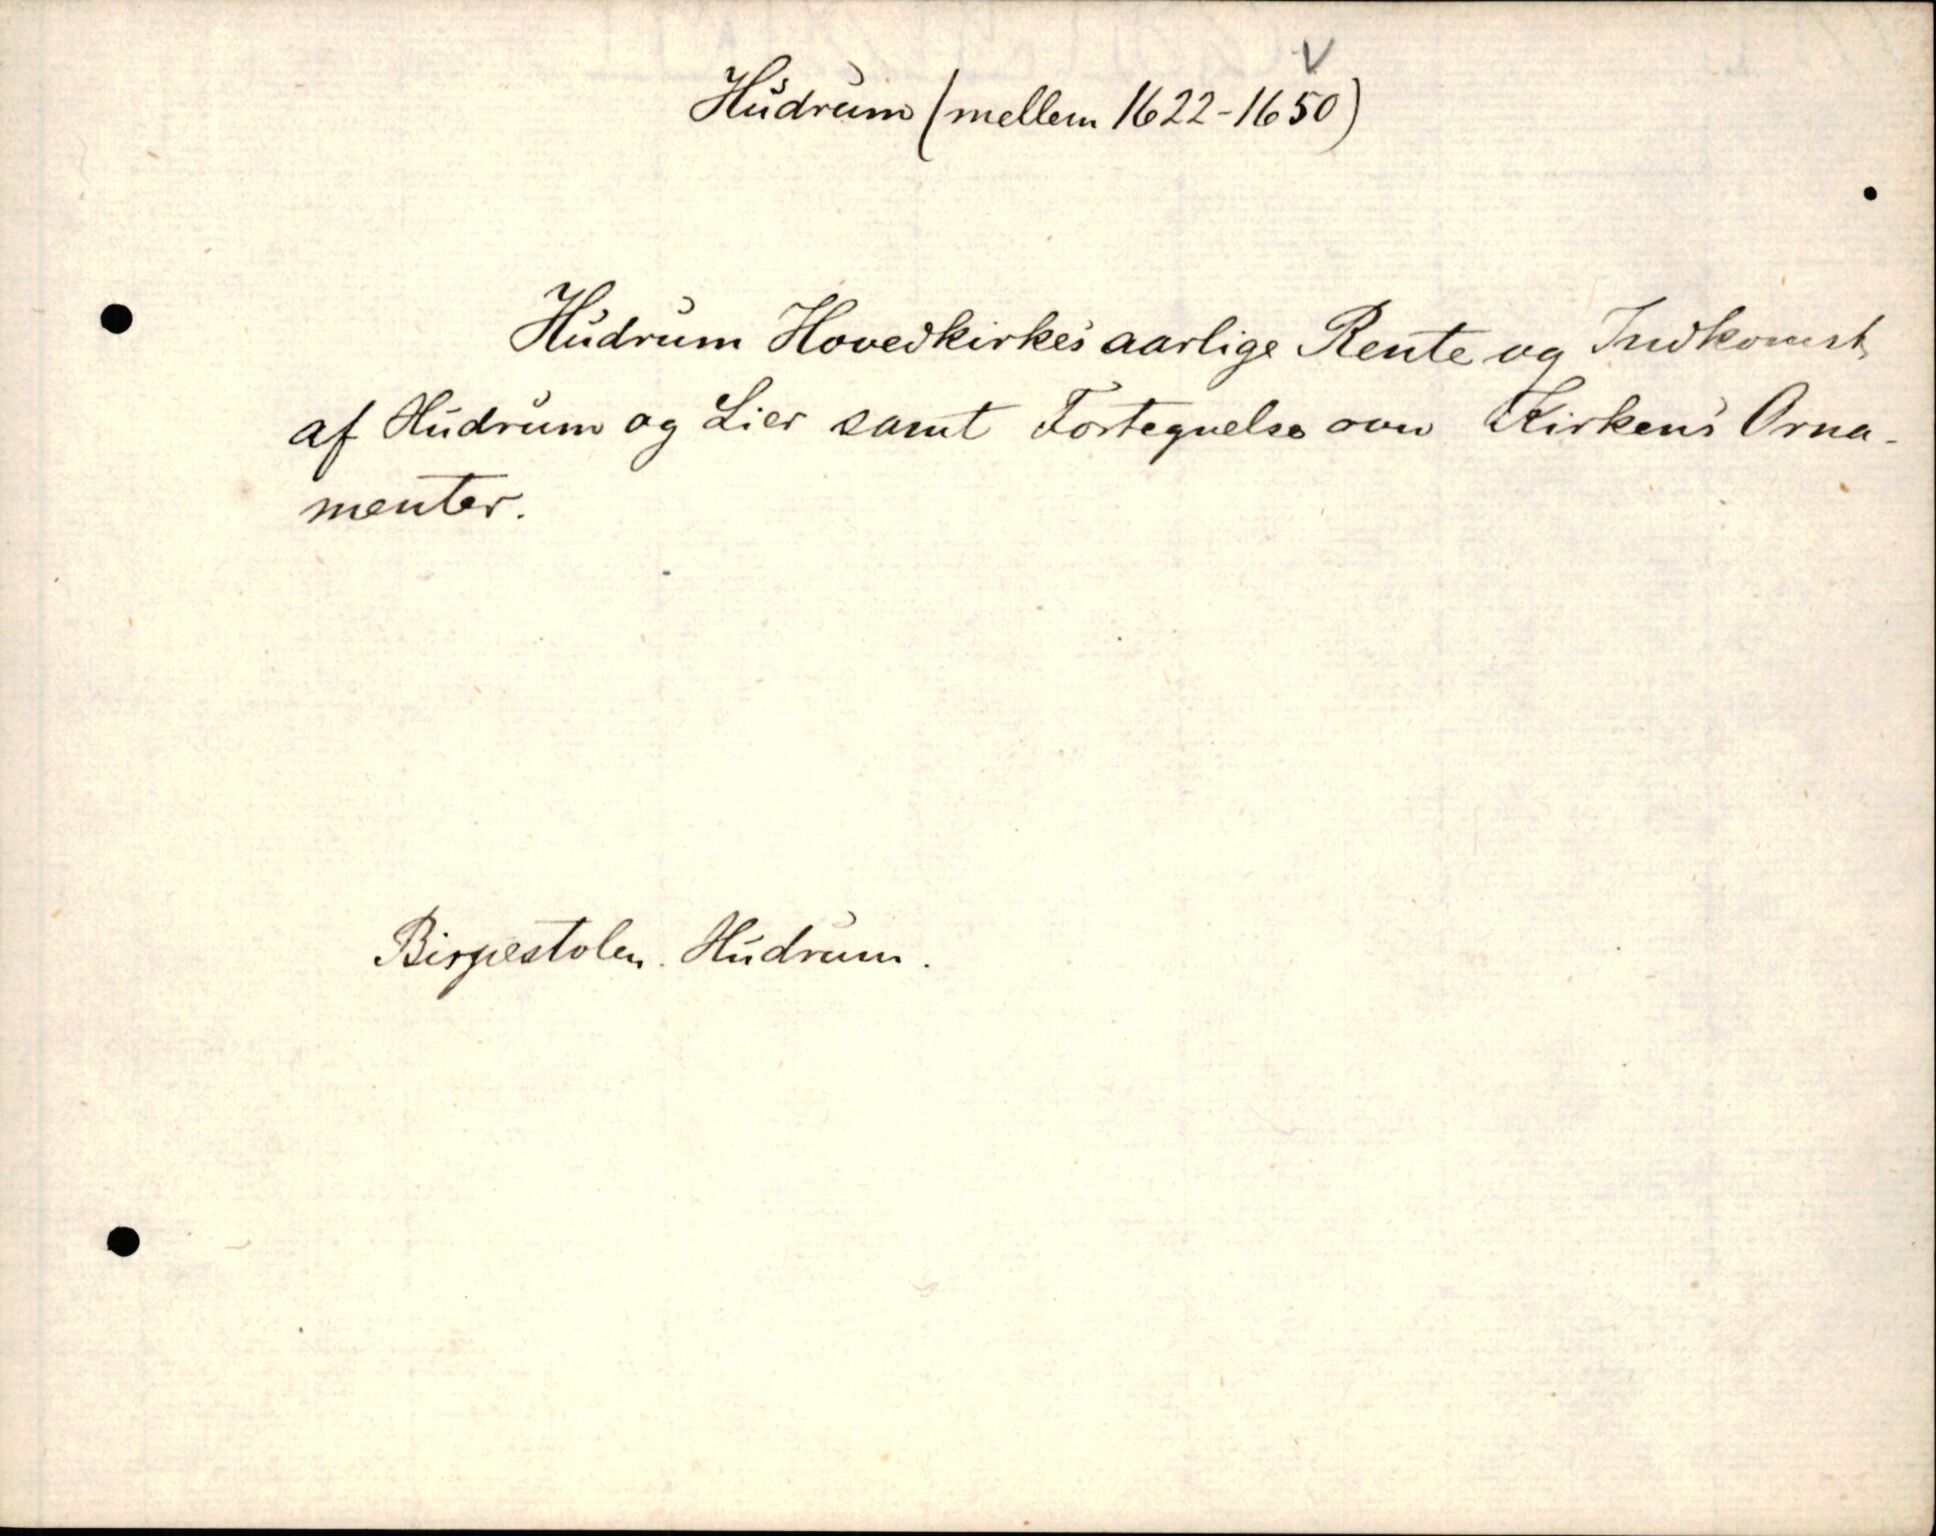 Hudrum (mellem 1622-1650)
Hudrum Hovedkirkes aarlige Rente og Indkomst
af Hudrum og Lier samt Fortegnelse over Kirkens Orna-
menter.
Bispestolen. Hudrum.